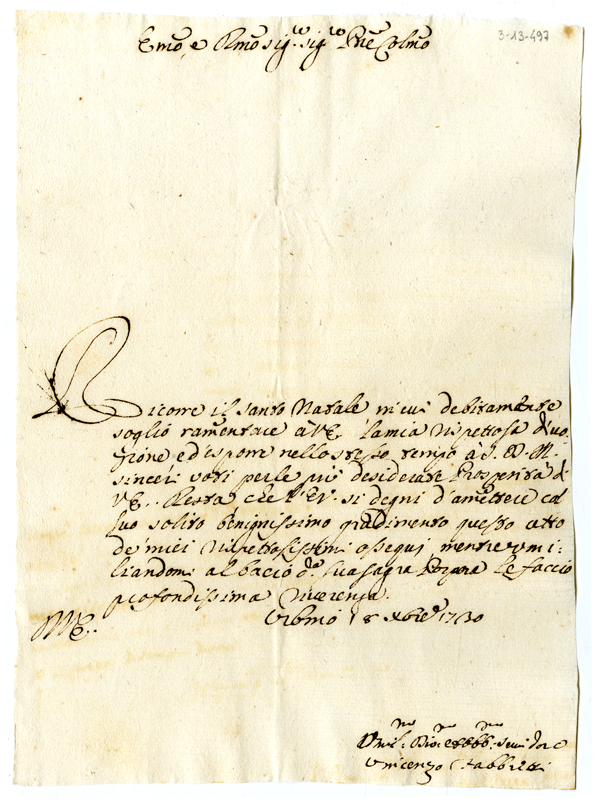 3-13-497
Emo, e Rmo Sig.r Sig.r Pne Colmo
Ricorre il Santo Natale in cui debitamente
soglio ramentare à V.E. la mia rispettosa divo-
zione e d'esporre nello stesso tempo à S. D. M.
sinceri voti per le più desiderate Prosperità di
V.E.. Resta che l'E.V. si degni d'amettere col
suo solito benignissimo gradimento questo atto
de' miei rispettosissimi ossequi, mentre umi:
liandomi al bacio d.a sua sagra Porpora le faccio
profondissima riverenza.
Urbino 18 Xbre 1730
Vmil.mo Dio.mo Obbb.mo Servidore
Vincenzo Fabbretti